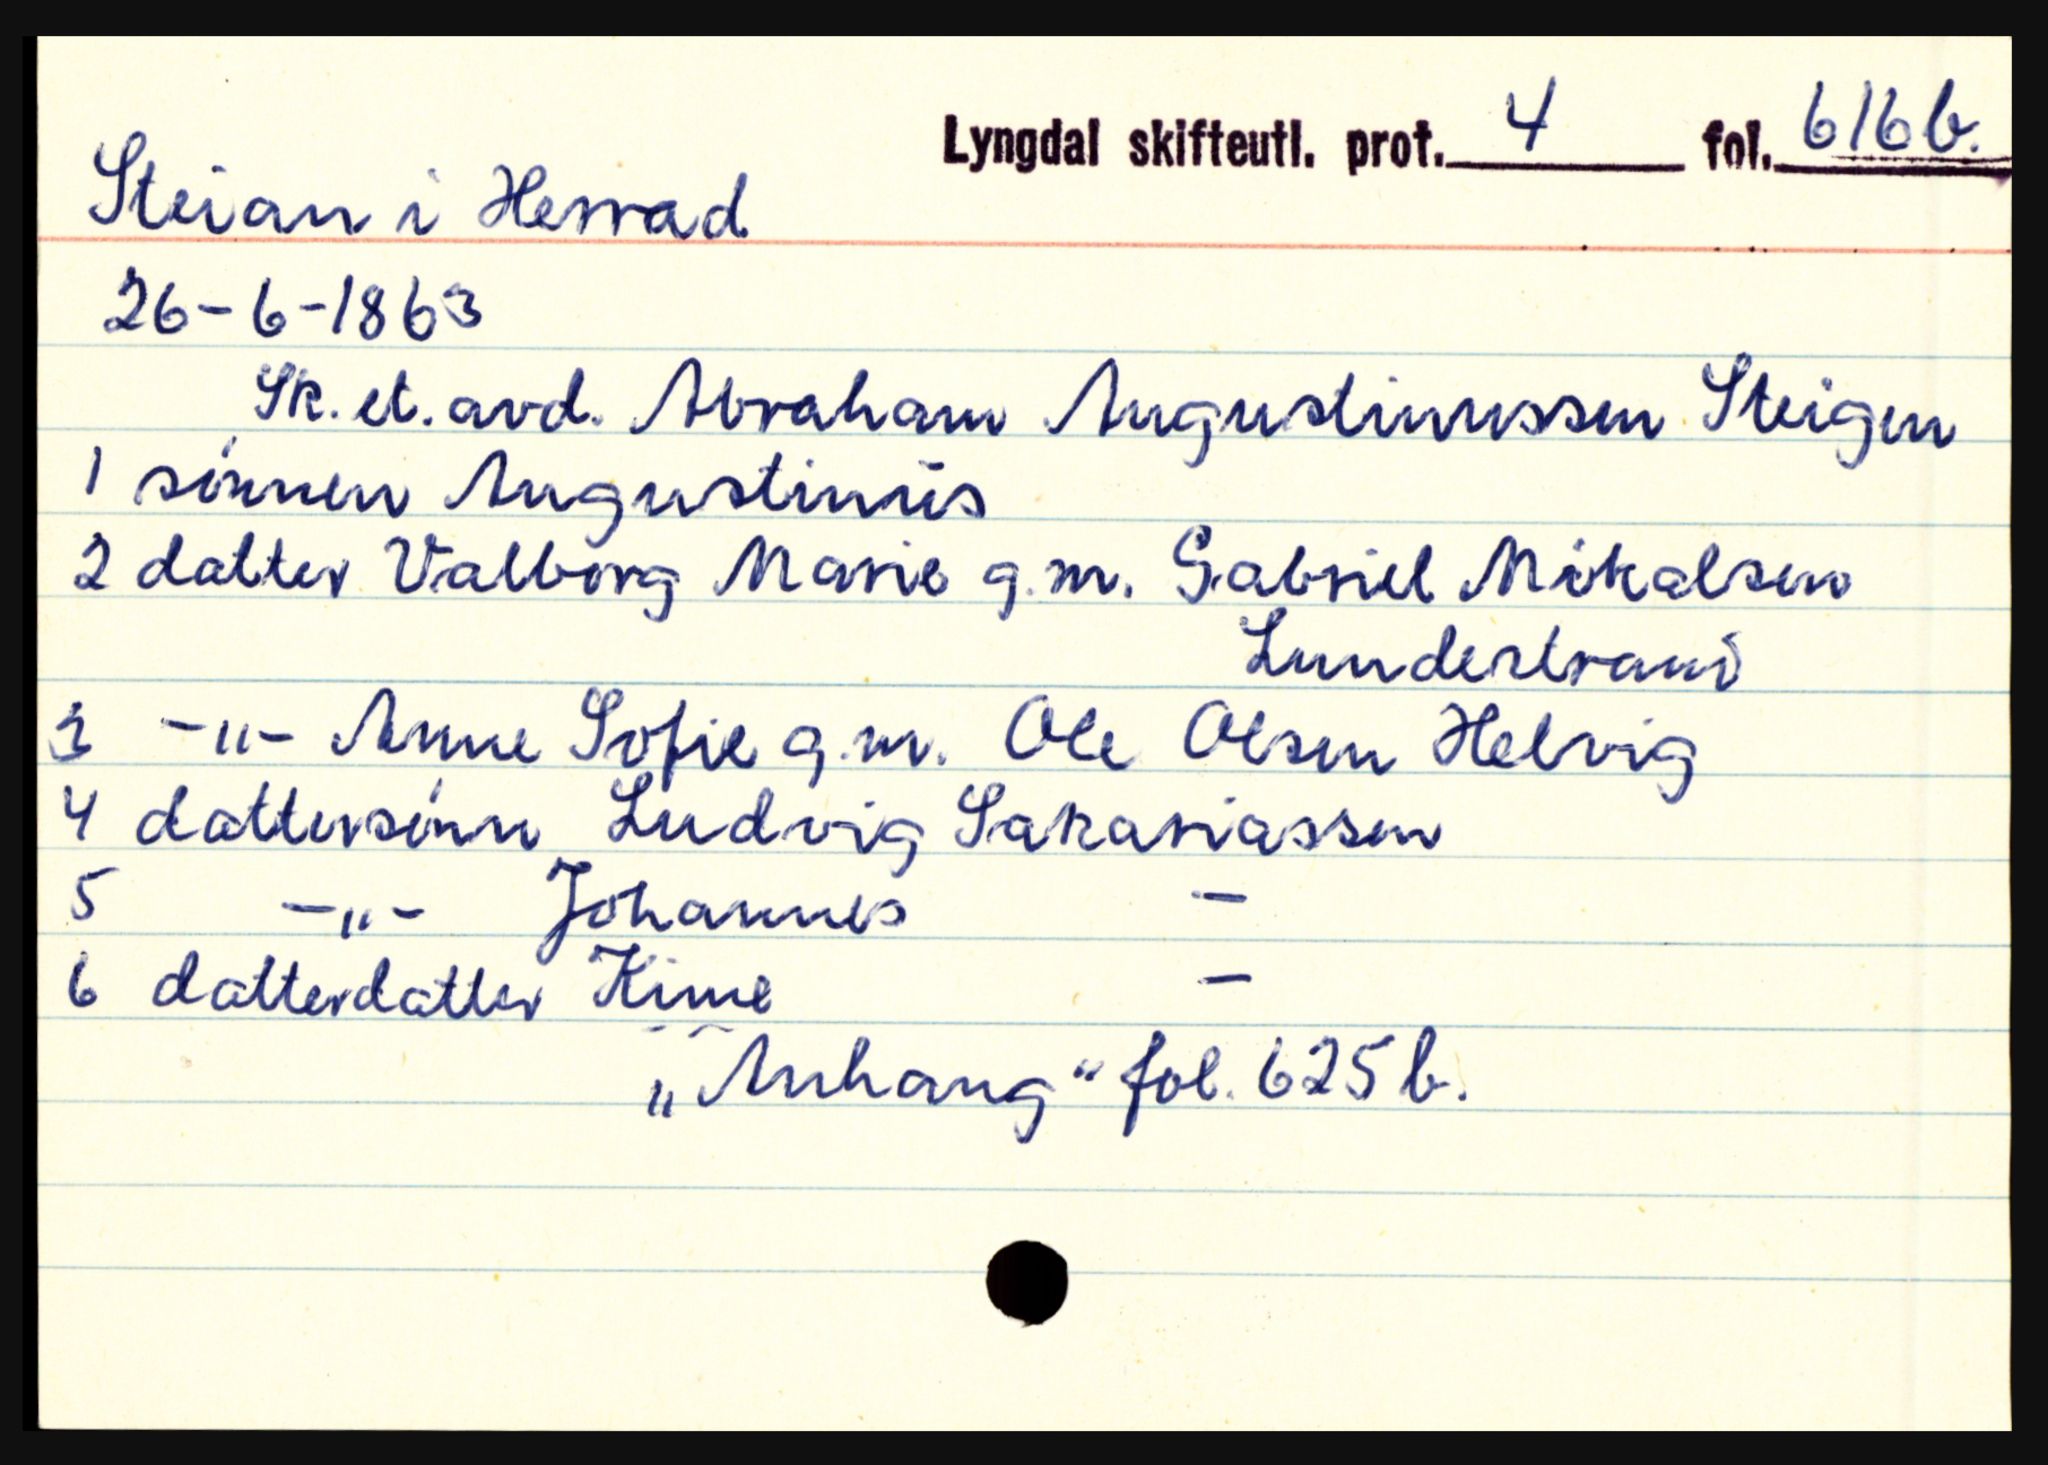 Lyngdal skifteutl. prot. 4 fol. 616b.
Steian i Herrad
26-6-1863
Sk. et. avd. Abraham Augustinussen Steigen
1 sönnen Augustinus
2 datter Valborg Marie g.m. Gabriel Mikalsen
3 -"- Anne Sofie g.m. Ole Olsen Helvig
4 dattersönn Ludvig Sakariassen
5 -"- Johannes -
6 datterdatter Kine -
„Anhang" fol. 625b.